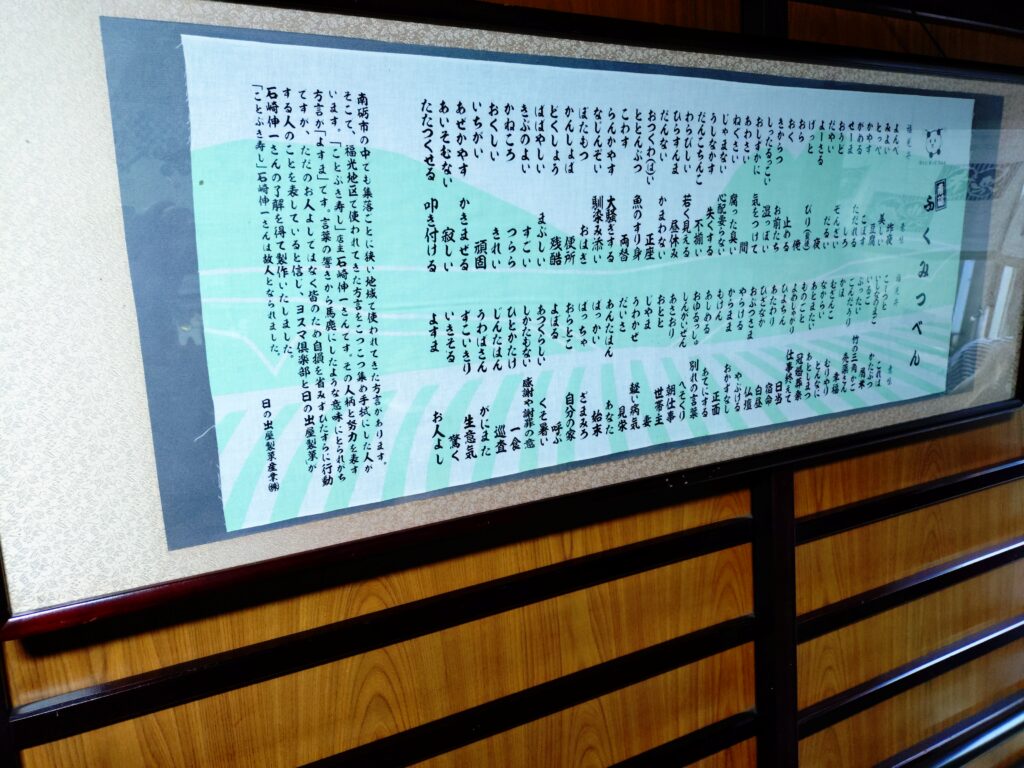 南砺
ふくみつべん
福光弁 意味
よんべ 昨夜
みめよい 美しい
とっぺ 豆腐
かやす こぼす
だやい だるい
よーさる 夜
げっと びり
おく 止める
お前たち
しったるっこい 湿っぽい
おしずかに 気をつけて
あわさい 間
ねぐさい 腐った臭い
じゃまない 心配要らない
うしなかす 失くする
だんこちんこ 不揃い
わらびしい 若く見える
ひらすんま 昼休み
だんない かまわない
おつくわい(はい) 正座
ととんぶつ 魚のすり身
こわす 両替
らんかやす 大騒ぎする
なじんぞい 馴染み添い
ぼたもつ おはぎ
かんしょば 便所
どくしょう 残酷
ばばやしい まぶしい
きぶのよい すごい
かねころ つらら
おくしい きれい
いちがい 頑固
あぜかやす かきまぜる
あいそむない 寂しい
たたつくせる 叩き付ける
福光弁 意味
こーつと これは
ごんだわり 竹の三角かご
かほ 幸福
なからい
あとまたい あとしまつ
ものごと 冠婚葬祭
よわしがり 仕事終えて
ひょうちん 日当
あたなり 宿命
ひざなか 白昼
おぶつさま 仏壇
やらける やぶける
からまま おかずなし
もけん 正面
あしめる あてにする
おゆるっしゅ 別れの言葉
しんがいぜん へそくり
あさごおり 朝仕事
おとと 世帯主
じゃま 妻
うわかぜ 軽い病気
だいさ 見栄
あんたはん あなた
はっかい 始末
ばっちゃ ざまみろ
おらとこ 自分の家
よぼる 呼ぶ
あつくらしい くそ暑い
しかたもない 感謝や謝罪の意
ひとかたけ 一食
じんたはん 巡査
うわばさん がにまた
すこいきり 生意気
いきそる 驚く
よすま お人よし
南砺市の中でも集落ごとに狭い地域で使われてきた方言があります。
そこで、福光地区で使われてきた方言をこつこつ集め手拭にした人が
います。「ことぶき寿し」店主石崎伸一さんです。その人柄と努力を表す
方言が「よすま」です。言葉の響きから馬鹿にしたような意味にとられがち
ですが、ただのお人よしではなく皆のため自損を省みずひたすらに行動
する人のことを表していると信じ、ヨスマ倶楽部と日の出屋製菓が
石崎伸一さんの了解を得て製作いたしました。
「ことぶき寿し」石崎伸一さんは故人となられました。
日の出屋製菓産業㈱